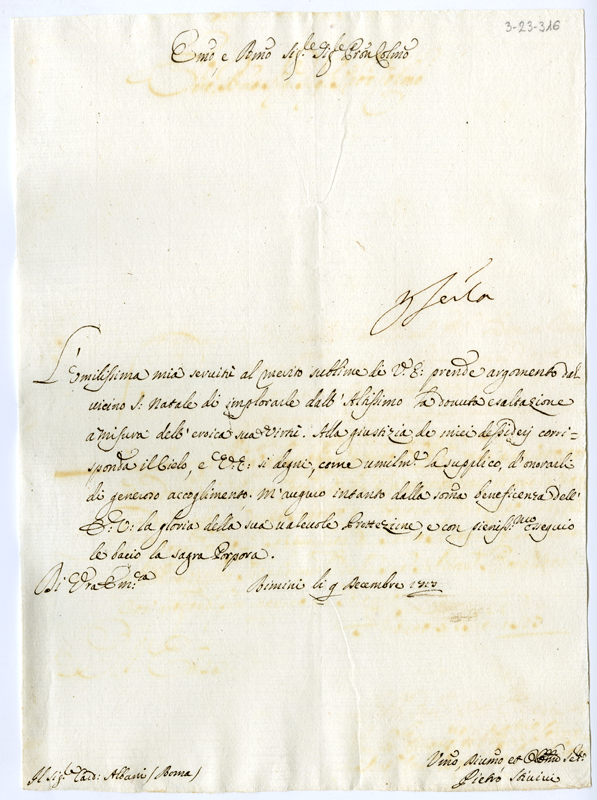 3-23-316
Emo, e Rmo Sigr. Sigr. Pron Colmo
L'Umilissima mia servitù al merito sublime di V.E: prende argomento dal
vicino S. Natale di implorarle dall'Altissimo la dovuta esaltazione
a misura dell'eroica sua virtù. Alla giustizia de miei desiderj corri=
sponda il Cielo, e V.E: si degni, come umilmte. la supplico, d'onorarli
di generoso accoglimento. M'auguro intanto dalla somma beneficenza dell'
E: V: la gloria della sua valevole Protezione, e con pieniss.mo ossequio
le bacio la sagra Porpora.
Di V'ra Em.za Rimini li 9 Decembre
Il Sigr. Card: Albani (Roma)
Umo Divmo et Servre
Pietro